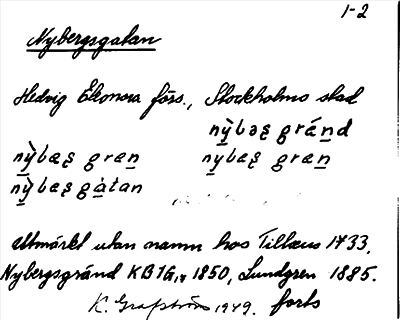 1-2
Nybergsgatan
Hedvig Eleonora förs., Stockholms stad
nỳbæʂ gránd
nỳbæʂ græn nỳbæʂ græn
nỳbæʂ gàtan
Utmärkt utan namn hos Tillæus 1733.
Nybergsgränd KB 1850, Lundgren 1885.
K. Grafström 1949. forts